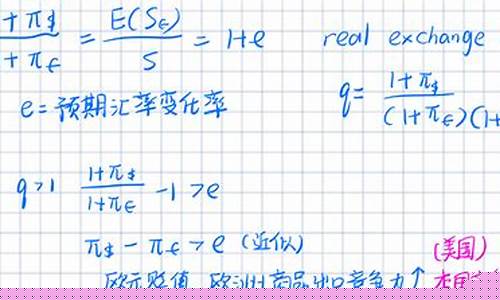 +π$ / +π€ = E(S€) / S = 1+e
real exchange
e = 预期汇率变化率
q = 1+π$ / (1+π€)(1+
q>1 1+π$ / 1+π€ -1 > e
π$ - π€ > e (近似)
(美国)
欧元贬值 欧洲商品出口竞争力↑